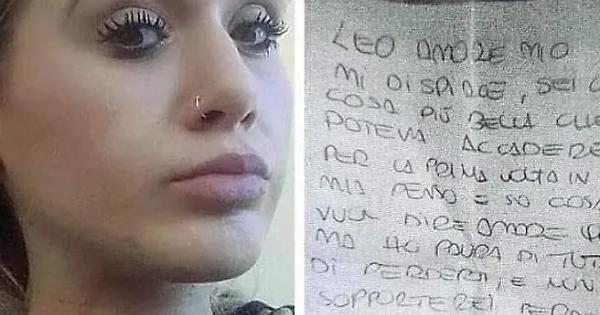 LEO AMORE MIO
MI DISPIACE, SEI
COSA PIÙ BELLA CHE
POTEVA ACCADERE
PER LA PRIMA VOLTA IN
MIA PENSO E SO COSA
VUOL DIRE AMORE
MA HO PAURA DI TUT
DI PERDERTI, E NON
SOPPORTEREI